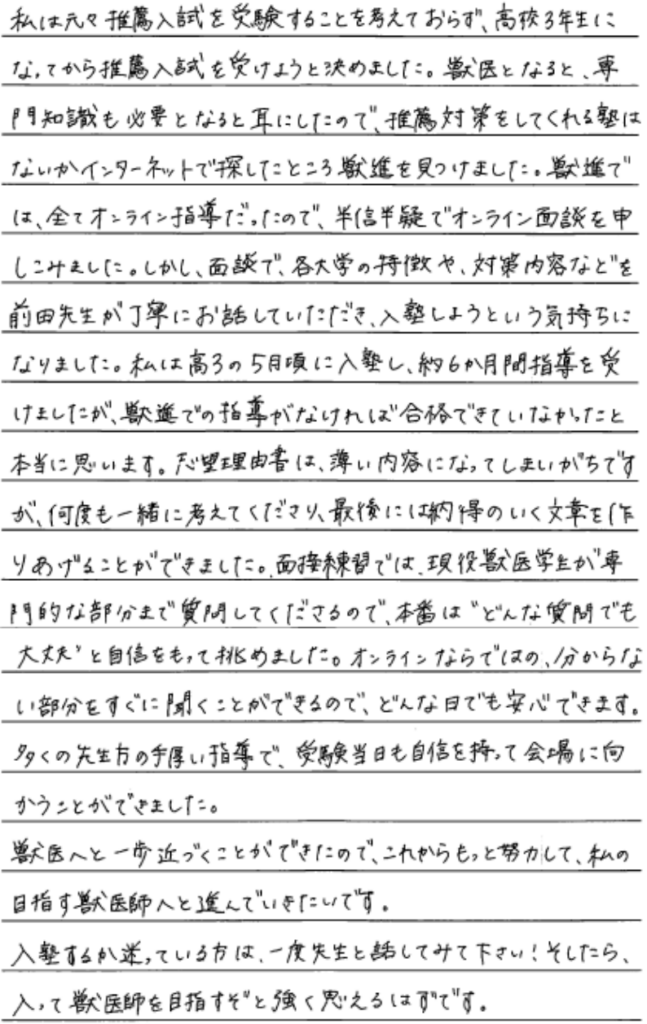 私は元々推薦入試を受験することを考えておらず、高校3年生に
なってから推薦入試を受けようと決めました。獣医となると、専
門知識も必要となると耳にしたので、推薦対策をしてくれる塾は
ないかインターネットで探したところ獣進を見つけました。獣進で
は、全てオンライン指導だったので、半信半疑でオンライン面談を申
しこみました。しかし、面談で、各大学の特徴や、対策内容などを
前田先生が丁寧にお話していただき、入塾しようという気持ちに
なりました。私は高3の5月頃に入塾し、約6か月間指導を受
けましたが、獣進での指導がなければ合格できていなかったと
本当に思います。志望理由書は、薄い内容になってしまいがちです
が、何度も一緒に考えてくださり、最後には納得のいく文章を作
りあげることができました。面接練習では、現役獣医学生が専
門的な部分まで質問してくださるので、本番は"どんな質問でも
大丈夫"と自信をもって挑めました。オンラインならではの、分からな
い部分をすぐに聞くことができるので、どんな日でも安心できます。
多くの先生方の手厚い指導で、受験当日も自信を持って会場に向
かうことができました。
獣医へと一歩近づくことができたので、これからもっと努力して、私の
目指す獣医師へと進んでいきたいです。
入塾するか迷っている方は、一度先生と話してみて下さい!そしたら、
入って獣医師を目指すぞと強く思えるはずです。